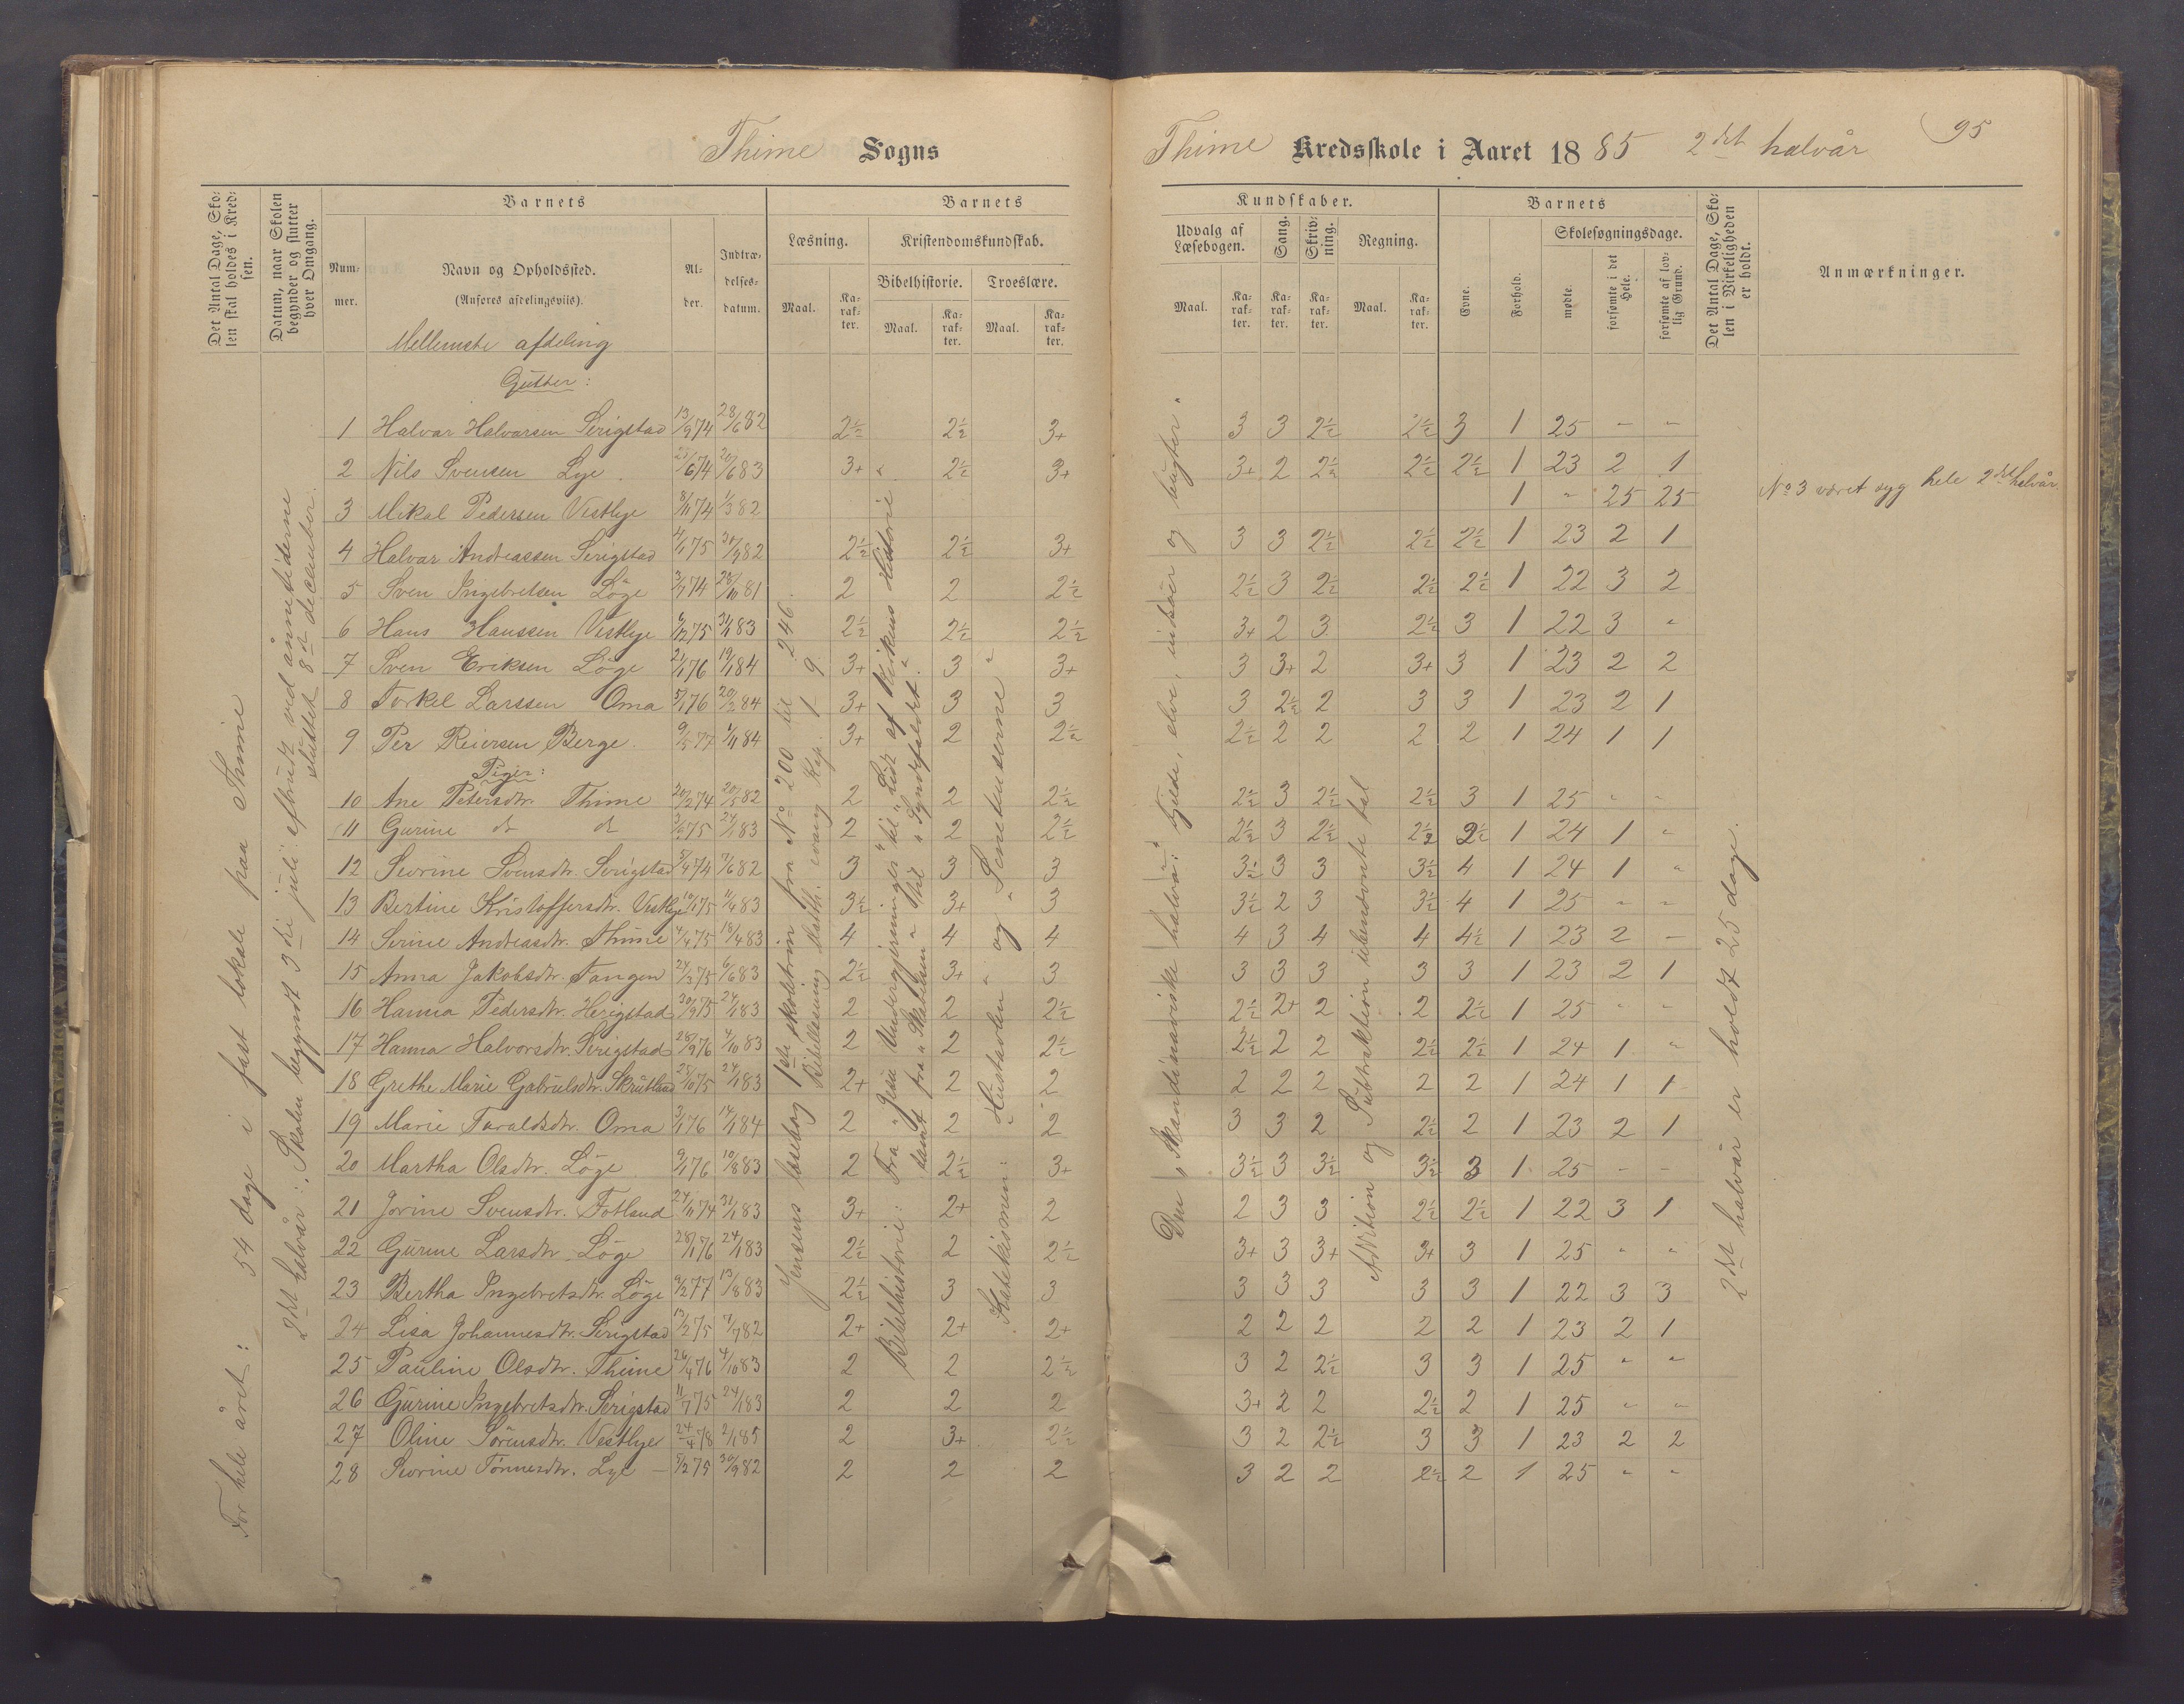 Thime Sogns
Thime Kredsskole i Aaret 1885 2det halvår 95
Det Antal Dage, Skolen skal holdes i Kredsen.
Datum, naar Skolen begynder og slutter hver Omgang.
Barnets
Nummer.
Navn og Opholdssted.
(Anføres afdelingsviis).
Alder.
Indtrædelsesdatum.
Barnets
Læsning.
Maal.
Karakter.
Kristendomskundskab.
Bibelhistorie.
Maal.
Karakter.
Troeslære.
Maal.
Karakter.
Kundskaber.
Udvalg af Læsebogen.
Maal.
Karakter.
Sang.
Karakter.
Skrivning.
Karakter.
Regning.
Maal.
Karakter.
Barnets
Evne.
Forhold.
Skolesøgningsdage.
mødte.
forsømte i det Hele.
forsømte af lovlig Grund.
Det Antal Dage, Skolen i Virkeligheden er holdt.
Anmærkninger.
Mellemste afdeling
Gutter:
1 Halvar Halvarsen Serigstad 13/9 74 28/6 82 2½ 2½ 3+ 3 3 2½ 2½ 3 1 25 - -
2 Nils Svensen Lye 83 3+ 2½ 3+ 3+ 2 2½ 2½ 2½ 1 23 2 1
3 Mikal Pedersen Vestlye 8/11 74 1/3 82 1 " 25 25 No 3 været syg hele 2det halvår
4 Halvar Andreassen Serigstad 4/1 75 82 2½ 2½ 3+ 3 3 2½ 2½ 2½ 1 23 2 1
5 Sven Ingebretsen Löge 74 28/10 81 2 2 2½ 2½ 3 2½ 2½ 2½ 1 22 3 2
6 Hans Hanssen Vestlye 6/12 75 31/1 83 2½ 2½ 2½ 3+ 2 3 2½ 3 1 22 3 "
7 Sven Eriksen Löge 21/1 76 19/1 84 3+ 3 3+ 3 3+ 2 3+ 3 1 23 2 2
8 Torkel Larssen Oma 5/1 76 20/2 84 3+ 3 3 3 2½ 2 3 3 1 23 2 1
9 Per Reiersen Berge 9/5 77 1/11 84 3+ 2 2½ 2½ 2 2 2 2 1 24 1 1
Piger:
10 Ane Petersdtr. Thime 20/2 74 20/5 82 2 2 2½ 2½ 3 2½ 2½ 3 1 25 " "
11 Gurine dt dt 75 24/1 83 2 2 2½ 2½ 3 2½ 2½ 2½ 1 24 1 "
12 Severine Svensdtr. Serigstad 5/4 74 82 3 3 3 3½ 3 3 3½ 4 1 24 1 "
13 Bertine Kristoffersdtr. Vestlye 75 83 3½ 3+ 3 3½ 2 3 3½ 4 1 25 " "
14 Serine Andreasdtr. Thime 4/4 75 18/4 83 4 4 4 4 3 4 4 4½ 1 23 2 -
15 Anna Jakobsdtr. Tangen 24/3 75 6/6 83 2½ 3+ 3 3 3 3 3 3 1 23 2 1
16 Hanna Pedersdtr. Herigstad 30/9 75 24/1 83 2 2 2½ 2½ 2+ 2 2 2½ 1 25 " "
17 Hanna Halvorsdtr. Serigstad 28/9 76 4/10 83 2 2 2½ 2½ 2 2 2½ 2½ 1 24 1 "
18 Grethe Marie Gabrielsdtr. Skrutland 25/10 75 24/1 83 2+ 2 2 2 2 2 2 2 1 24 1 1
19 Marie Taraldsdtr. Oma 3/1 76 14/1 84 2 2 2 3 3 2 2½ 2 1 23 2 1
20 Martha Olsdtr. Löge 9/1 76 10/8 83 2 2½ 3+ 3½ 3 3½ 3½ 3 1 25 - -
21 Jorine Svensdtr. Fotland 24/11 74 31/1 83 3+ 2+ 2 2 3 3 2½ 2½ 1 22 3 1
22 Gurine Larsdtr. Löge 28/1 76 24/1 83 2½ 2 2½ 3+ 3 3+ 3+ 3 1 25 " "
23 Bertha Ingebretsdtr. Löge 9/2 77 13/8 83 2½ 3 3 3 3 3 3 3 1 22 3 3
24 Lisa Johannesdtr. Serigstad 13/2 75 7/7 82 2+ 2+ 2+ 2 2 2 2 2 1 23 2 1
25 Pauline Olsdtr. Thime 26/4 76 4/10 83 2 2 2½ 3 2 2½ 3 3 1 25 " "
26 Gurine Ingebretsdtr. Serigstad 11/7 75 24/1 83 2 2 2 3+ 2 2 2½ 2 1 25 " "
27 Oline Sörensdtr. Vestlye 24/4 78 2/1 85 2 3+ 2½ 3 2 2½ 3 3 1 23 2 2
28 Severine Tönnesdtr. Lye - 5/2 75 30/9 82 2 2 2 3 2 2 2½ 2 1 25 " "
For hele året: 54 dage i fast lokale paa Thime
2det halvår: Skolen begyndt 3die juli. eftrudt ved ånnetiderne
sluttet 8de december.
Jensens læsebog 1ste skoletrin fra No 200 til 246.
Bibellæsning Matth. evang. Kap. 1 9.
Bibelhistorie: Fra "Jesu Undergjerninger" til "Lidt af Kirkens Historie"
samt fra "Skabelsen" til "Syndefaldet".
Katekismen: "Hustavlen" og "Senetenserne"
Den "Skandinaviske halvøa:" Fjelde, elve, indsöer og bugter"
Addition og Subtraktion i ubenævnte tal
2det halvår er holdt 25 dage.